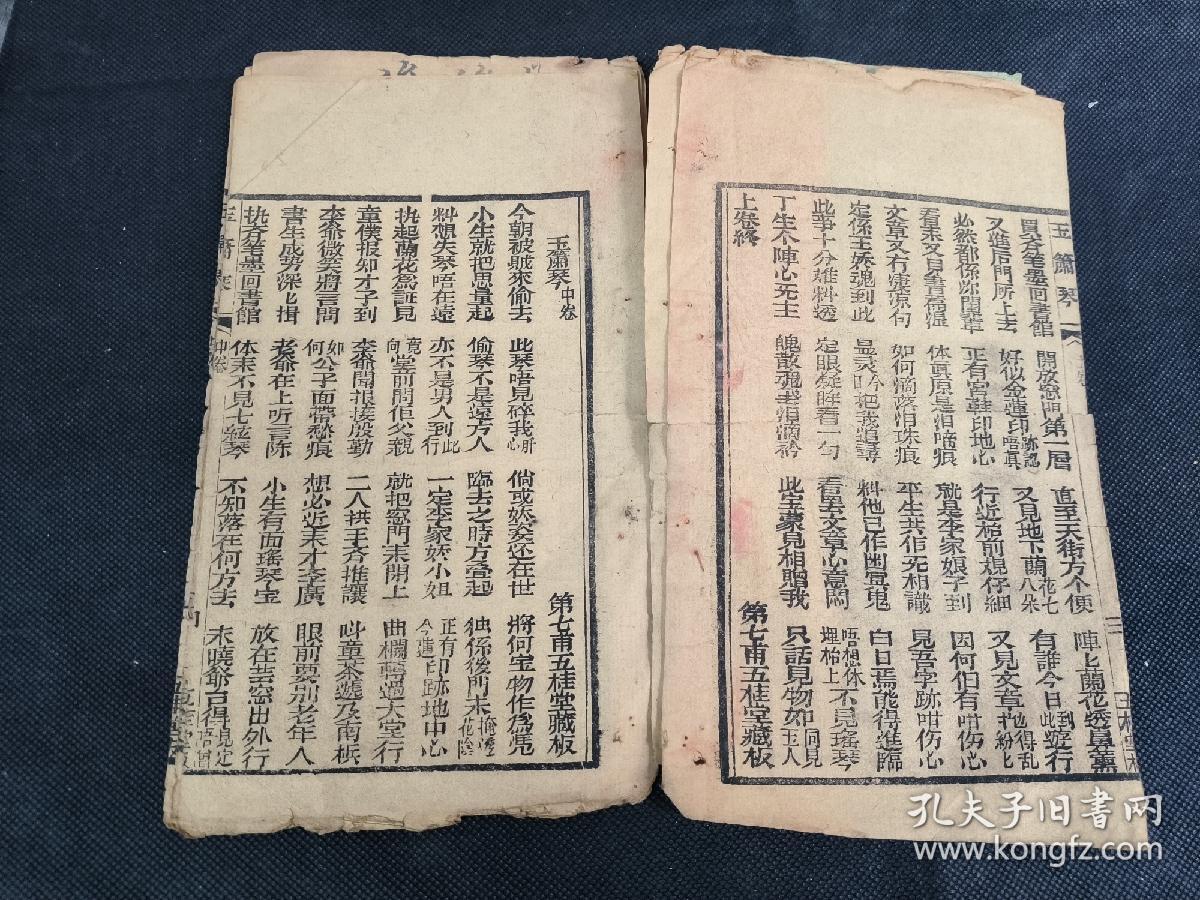 玉簫琴
買齐笔墨回書館 開放窓門第一層 直至天街方个便 陣匕蘭花透鼻薰
又進后門所上去 好似金蓮印跡認唔真 又見地下蘭花七八朵 有誰今日到此遊行
必然都係你閑 正有宮鞋印地心 行近棺前想仔細 又見文章也得乱紛匕
看來又見書 体真原是泪啼痕 就是李家娘子到 因何怕有咁伤心
文章又冇凄凉句 如何滴落泪珠痕 平生共作无相識 見吾字跡咁伤心
定係王娇魂到此 显灵吟把我追尋 料他已作幽冥鬼 白日焉能得進臨
此事十分难料透 定眼凝眸看一勻 看罢文章心意闷 唔想体埋枱上不見瑤琴
丁生个陣心无主 魄散魂飞泪滴衿 此宝蒙兄相贈我 只話見物如同見主人
上卷終 第七甫五桂堂藏板
玉簫琴中卷 第七甫五桂堂藏板
今朝被賊來偷去 此琴唔見碎我肝心 倘或娇姿还在世 將何宝物作為凴
小生就把思量起 偷琴不是遠方人 臨去之時方叠起 独係後門未掩花陰
料想失琴唔在遠 亦不是男人到此行 一定李家娇小姐 正有今蓮印跡地中心
执起蘭花為証見 竟向堂前問佢父親 就把窓門来開上 曲欄轉過大堂行
童僕报知才子到 李爺聞报接殷勤 二人拱王齐推讓 吩童茶遞及南梹
李爺微笑將言問 如何公子面帶愁痕 想必近来才李廣 眼前要别老年人
書生成努深匕揖 老爺在上听言陈 小生有面瑤琴宝 放在芸窓出外行
执齐笔墨回書館 体来不見七絃琴 不知落在何方去 未曉爺台得見定唔曾
中卷
孔夫子旧书网
www.kongfz.com